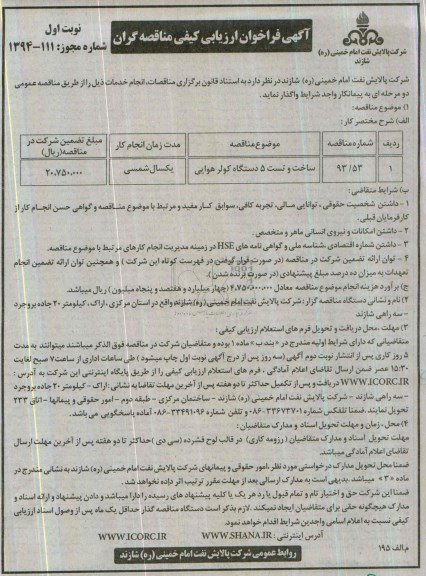 آگهی فراخوان ارزیابی کیفی مناقصه گران
نوبت اول
شماره مجوز: ۱۱۱-۱۳۹۴
شرکت پالایش نفت امام خمینی (ره)
شازند
شرکت پالایش نفت امام خمینی (ره) شازند در نظر دارد به استناد قانون برگزاری مناقصات، انجام خدمات ذیل را از طریق مناقصه عمومی
دو مرحله ای به پیمانکار واجد شرایط واگذار نماید.
۱) موضوع مناقصه:
الف) شرح مختصر کار:
ردیف | شماره مناقصه | موضوع مناقصه | مدت زمان انجام کار | مبلغ تضمین شرکت در مناقصه (ریال)
۱ | ۹۳/۵۳ | ساخت و تست ۵ دستگاه کولر هوایی | یکسال شمسی | ۲۰،۷۵۰،۰۰۰
ب) شرایط متقاضی:
۱ - داشتن شخصیت حقوقی، توانایی مالی، تجربه کافی، سوابق کار مفید و مرتبط با موضوع مناقصه و گواهی حسن انجام کار از
کارفرمایان قبلی.
۲ - داشتن امکانات و نیروی انسانی ماهر و متخصص.
۳ - داشتن شماره اقتصادی، شناسه ملی و گواهی نامه های HSE در زمینه مدیریت انجام کارهای مرتبط با موضوع مناقصه.
۴ - توان ارائه تضمین شرکت در مناقصه (در صورت قرار گرفتن در فهرست کوتاه این شرکت) و همچنین توان ارائه تضمین انجام
تعهدات به میزان ده درصد مبلغ پیشنهادی (در صورت برنده شدن).
ج) برآورد هزینه انجام موضوع مناقصه معادل ۴،۷۵۰،۰۰۰،۰۰۰ (چهار میلیارد و هفتصد و پنجاه میلیون) ریال میباشد.
۲) نام و نشانی دستگاه مناقصه گزار: شرکت پالایش نفت امام خمینی (ره) شازند واقع در استان مرکزی، اراک، کیلومتر ۲۰ جاده بروجرد
- سه راهی شازند
۳) مهلت، محل دریافت و تحویل فرم های استعلام ارزیابی کیفی:
متقاضیانی که دارای شرایط اولیه مندرج در «بند ب» ماده ۱ بوده و متقاضیان شرکت در مناقصه فوق الذکر میباشند میتوانند به مدت
۵ روز کاری پس از انتشار نوبت دوم آگهی (سه روز پس از درج آگهی نوبت اول چاپ میشود) طی ساعات اداری از ساعت ۷ صبح لغایت
۱۵:۳۰ عصر ضمن ارسال تقاضای اعلام آمادگی، فرم های استعلام ارزیابی کیفی را از طریق پایگاه اینترنتی این شرکت به آدرس:
WWW.ICORC.IR دریافت و پس از تکمیل حداکثر تا دو هفته پس از آخرین مهلت تقاضا به نشانی: اراک - کیلومتر ۲۰ جاده بروجرد
- سه راهی شازند - شرکت پالایش نفت امام خمینی (ره) شازند - ساختمان مرکزی - طبقه دوم - امور حقوقی و پیمانها - اتاق ۲۳۳
تحویل نمایند. ضمنا تلفکس شماره ۳۳۶۷۳۷۰۱-۰۸۶ و تلفن شماره ۳۳۴۹۱۰۹۶-۰۸۶ آماده پاسخگویی می باشد.
۴) محل، زمان و مهلت تحویل اسناد و مدارک متقاضیان:
مهلت تحویل اسناد و مدارک متقاضیان (رزومه کاری) در قالب لوح فشرده (سی دی) حداکثر تا دو هفته پس از آخرین مهلت ارسال
تقاضای اعلام آمادگی میباشد.
ضمنا محل تحویل مدارک درخواستی مورد نظر، امور حقوقی و پیمانهای شرکت پالایش نفت امام خمینی (ره) شازند به نشانی مندرج در
ماده «۳» میباشد. بدیهی است به مدارک ارسالی بعد از مهلت مقرر ترتیب اثر داده نخواهد شد.
ضمنا این شرکت حق و اختیار تام و تمام قبول یا رد هر یک یا کلیه پیشنهاد های رسیده را دارا میباشد و دادن پیشنهاد و ارائه اسناد و
مدارک هیچگونه حقی برای متقاضیان ایجاد نمیکند. لازم بذکر است دستگاه مناقصه گذار حداقل یک ماه پس از وصول اسناد ارزیابی
کیفی نسبت به اعلام اسامی واجدین شرایط اقدام خواهد نمود.
آدرس اینترنتی: WWW.SHANA.IR WWW.ICORC.IR
م الف ۱۹۵
روابط عمومی شرکت پالایش نفت امام خمینی (ره) شازند